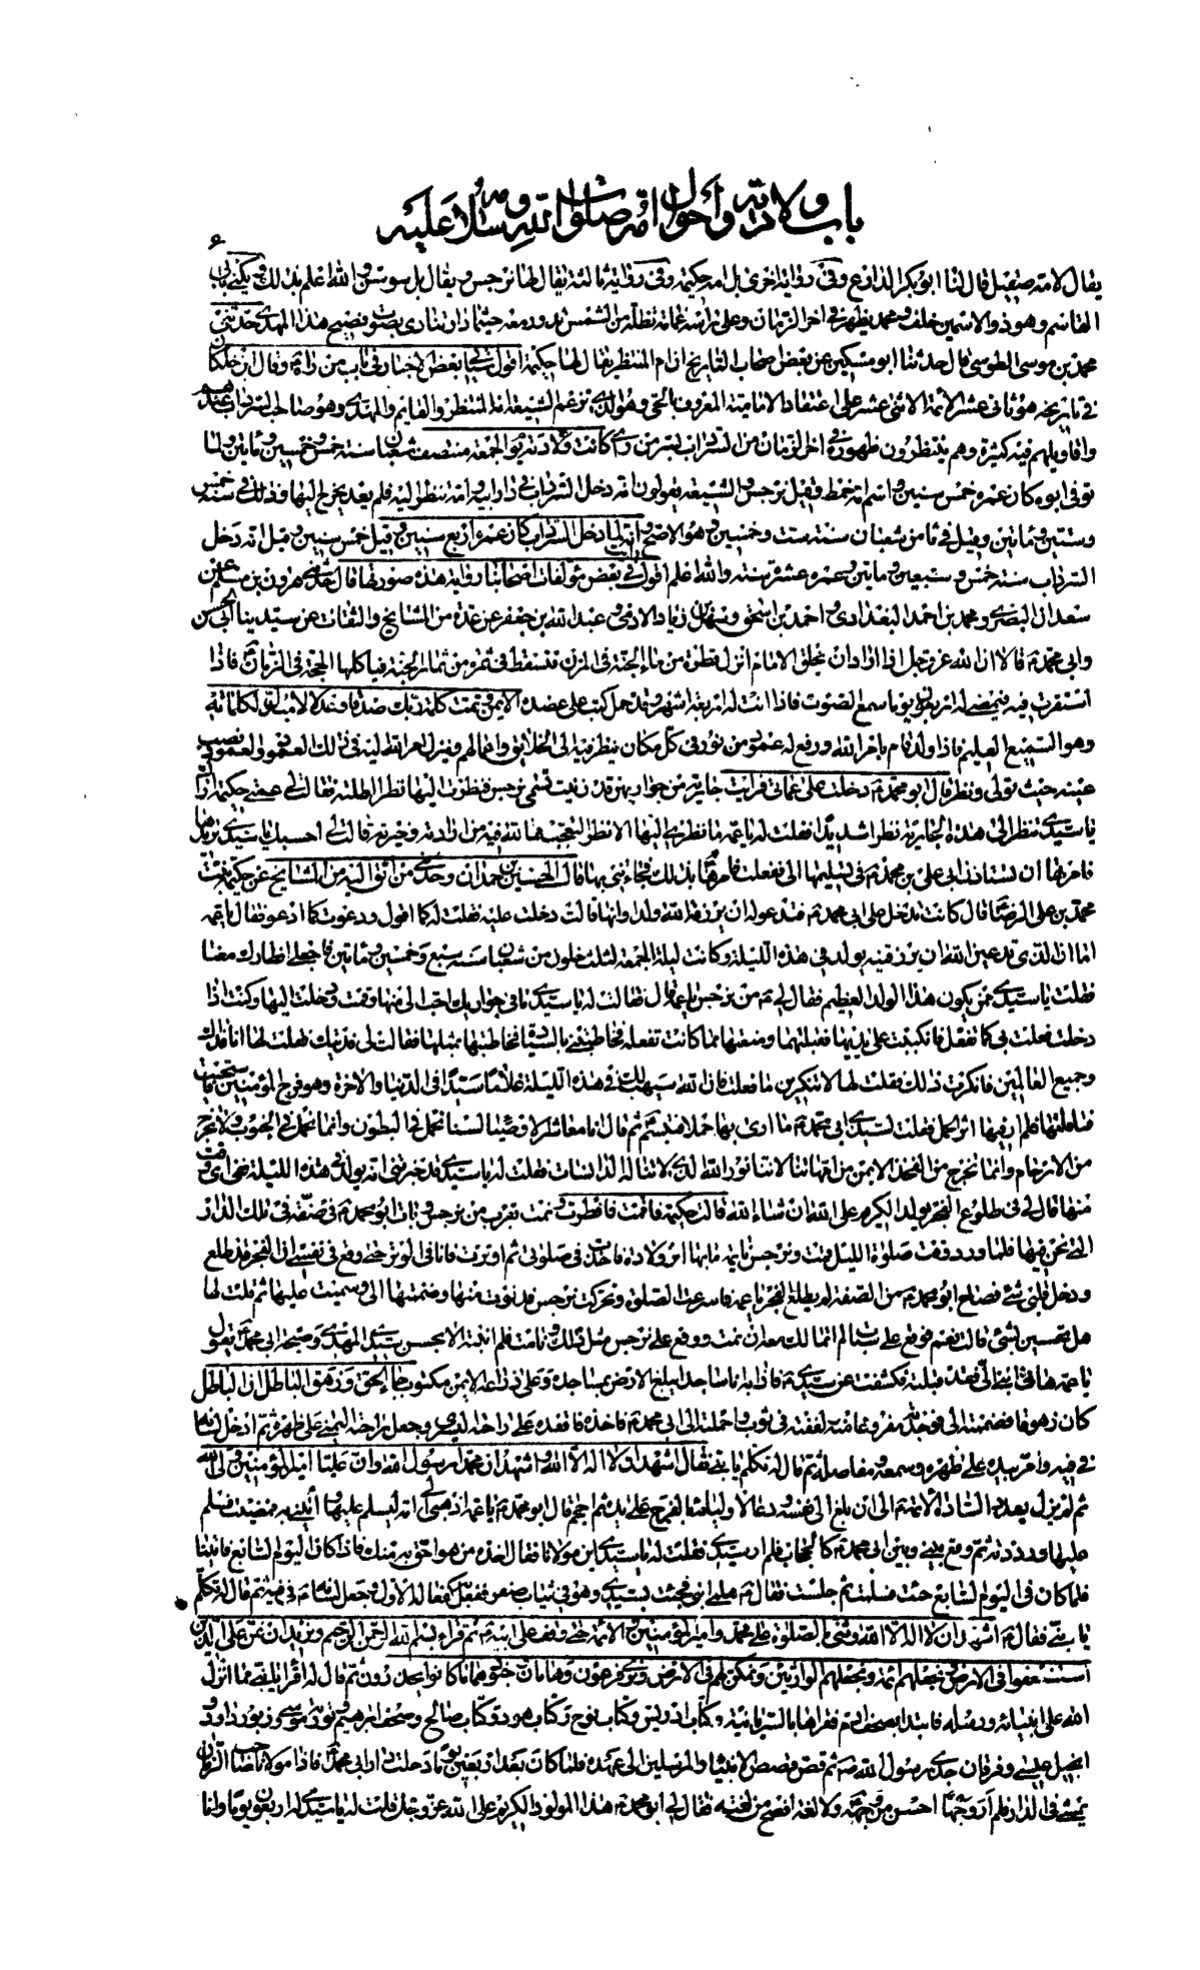 باب ولادته وأحوال امّه صلوات الله وسلامه عليه
يقال لامّه صقيل قال لنا ابو بكر الذارع وفي رواية اخرى بل امه حكيمة وفي رواية ثالثة يقال لها نرجس ويقال بل سوسن والله اعلم بذلك ويكنى بابي
القاسم وهو ذو الاسمين خلف ومحمد يظهر في اخر الزمان وعلى راسه غمامة تظله من الشمس تدور معه حيثما دار تنادي بصوت فصيح هذا المهدي حدثني
محمد بن موسى الطوسي قال حدثنا ابو مسكين عن بعض اصحاب التاريخ ان ام المنتظر يقال لها حكيمة اقول سيأتي بعض الاخبار في باب من رآه وقال ابن خلكان
في تاريخه هو ثاني عشر الائمة الاثني عشر على اعتقاد الامامية المعروف بالحجة وهو الذي تزعم الشيعة انه المنتظر والقائم والمهدي وهو صاحب السرداب عندهم
واقاويلهم فيه كثيرة وهم ينتظرون ظهوره في اخر الزمان من السرداب بسر من رأى كانت ولادته يوم الجمعة منتصف شعبان سنة خمس وخمسين ومأتين ولما
توفي ابوه كان عمره خمس سنين واسم امه خمط وقيل نرجس والشيعة يقولون انه دخل السرداب في دار ابيه وامه تنظر اليه فلم يعد يخرج اليها وذلك في سنة خمس
وستين ومأتين وقيل في ثامن شعبان سنة ست وخمسين وهو الاصح وانه لما دخل السرداب كان عمره اربع سنين وقيل خمس سنين وقيل انه دخل
السرداب سنة خمس وسبعين ومأتين وعمره عشرة سنة والله اعلم اقول في بعض مؤلفات اصحابنا رواية هذه صورتها قال حدثني هرون بن مسلم عن
سعدان البصري ومحمد بن احمد البغدادي واحمد بن اسحق وسهل بن زياد الادمي وعبد الله بن جعفر عن عدة من المشايخ والثقات عن سيدينا ابي الحسن
وابي محمد ع قالا ان الله عز وجل اذا اراد ان يخلق الامام انزل قطرة من ماء الجنة في المزن فتسقط في ثمرة من ثمار الجنة فياكلها الحجة في الزمان ع فاذا
استقرت فيه فيمضي له اربعون يوما سمع الصوت فاذا اتت له اربعة اشهر وقد حمل كتب على عضده الايمن وتمت كلمة ربك صدقا وعدلا لا مبدل لكلماته
وهو السميع العليم فاذا ولد قام بامر الله ورفع له عمود من نور في كل مكان ينظر فيه الى الخلايق واعمالهم وينزل امر الله اليه في ذلك العمود والعمود نصب
عينه حيث تولى ونظر قال ابو محمد ع دخلت على عماتي فرأيت جارية من جواريهن قد زينت تسمى نرجس فنظرت اليها نظرا اطلته فقالت لي عمتي حكيمة اراك
يا سيدي تنظر الى هذه الجارية نظرا شديدا فقلت لها يا عمة ما نظري اليها الا نظر التعجب مما لله فيه من ارادته وخيرته قالت لي احسبك يا سيدي تريدها
فامرتها ان تستأذن ابي علي بن محمد ع في تسليمها الى ففعلت فامرها ع بذلك فجاءتني بها قال الحسين بن حمدان وحدثني من اثق اليه من المشايخ عن حكيمة بنت
محمد بن علي الرضا ع قال كانت تدخل على ابي محمد ع فتدعو له ان يرزقه الله ولدا وانها قالت دخلت عليه فقلت له كما اقول ودعوت كما ادعو فقال يا عمة
اما ان الذي تدعين الله ان يرزقنيه يولد في هذه الليلة وكانت ليلة الجمعة لثلث خلون من شعبان سنة سبع وخمسين ومأتين فاجعلي افطارك معنا
فقلت يا سيدي ممن يكون هذا الولد العظيم فقال لي ع من نرجس يا عمة قال فقالت له يا سيدي ما في جواريك احب الي منها وقمت ودخلت اليها وكنت اذا
دخلت فعلت بي كما تفعل فانكببت على يديها فقبلتهما ومنعتها مما كانت تفعله فخاطبتني بالسيادة فخاطبتها بمثلها فقالت لي فديتك فقلت لها انا فداك
وجميع العالمين فانكرت ذلك فقلت لها لا تنكرين ما فعلت فان الله سيهب لك في هذه الليلة غلاما سيدا في الدنيا والاخرة وهو فرج المؤمنين فاستحيت
فتأملتها فلم ار فيها اثر الحمل فقلت لسيدي ابي محمد ع ما ارى بها حملا فتبسم ع ثم قال انا معاشر الاوصياء لسنا نحمل في البطون وانما نحمل في الجنوب ولا نخرج
من الارحام وانما نخرج من الفخذ الايمن من امهاتنا لاننا نور الله الذي لا تناله الدانسات فقلت له يا سيدي قد اخبرتني انه يولد في هذه الليلة ففي اي وقت
منها قال لي في طلوع الفجر يولد الكريم على الله ان شاء الله قالت حكيمة فاقمت فافطرت ونمت بقرب من نرجس وبات ابو محمد ع في صفة في تلك الدار
التي نحن فيها فلما ورد وقت صلوة الليل قمت ونرجس نايمة ما بها اثر ولادة فاخذت في صلوتي ثم اوترت فانا في الوتر حتى وقع في نفسي ان الفجر قد طلع
ودخل قلبي شيء فصاح ابو محمد ع من الصفة لم يطلع الفجر يا عمة فاسرعت الصلوة وتحركت نرجس فدنوت منها وضممتها الي وسميت عليها ثم قلت لها
هل تحسين بشيء قالت نعم فوقع علي سبات لم اتمالك معه ان نمت ووقع على نرجس مثل ذلك ونامت فلم انتبه الا بحس سيدي المهدي وصيحة ابي محمد ع يقول
يا عمة هاتي ابني الي فقد قبلته فكشفت عن سيدي ع فاذا به ساجدا يبلغ الارض بمساجده وعلى ذراعه الايمن مكتوب جاء الحق وزهق الباطل ان الباطل
كان زهوقا فضممته الي فوجدته مفروغا منه لففته في ثوب وحملته الى ابي محمد ع فاخذه فاقعده على راحته اليسرى وجعل راحته اليمنى على ظهره ثم ادخل لسانه
في فيه وامر بيده على ظهره وسمعه ومفاصله ثم قال له تكلم يا بني فقال اشهد ان لا اله الا الله واشهد ان محمدا رسول الله وان عليا امير المؤمنين ولي الله
ثم لم يزل يعدد السادة الائمة الى ان بلغ الى نفسه ودعا لاوليائه بالفرج على يديه ثم احجم قال ابو محمد ع يا عمة اذهبي به الى امه ليسلم عليها وائتيني به فمضيت فسلم
عليها ورددته ثم وقع بيني وبين ابي محمد ع كالحجاب فلم ار سيدي فقلت له يا سيدي اين مولانا فقال اخذه من هو احق به منك فاذا كان اليوم السابع فاتينا
فلما كان في اليوم السابع جئت فسلمت ثم جلست فقال ع هلمي ابني فجئت بسيدي وهو في ثياب صفر ففعل به كفعاله الاول وجعل لسانه ع في فيه ثم قال له تكلم
يا بني فقال ع اشهد ان لا اله الا الله وثنى بالصلوة على محمد وامير المؤمنين والائمة حتى وقف على ابيه ع ثم قرء بسم الله الرحمن الرحيم ونريد ان نمن على الذين
استضعفوا في الارض ونجعلهم ائمة ونجعلهم الوارثين ونمكن لهم في الارض ونري فرعون وهامان وجنودهما منهم ما كانوا يحذرون ثم قال له اقرأ يا بني مما انزل
الله على انبيائه ورسله فابتدأ بصحف ادم فقرأها بالسريانية وكتاب ادريس وكتاب نوح وكتاب هود وكتاب صالح وصحف ابرهيم وتورية موسى وزبور داود و
انجيل عيسى وفرقان جدي رسول الله ص ثم قص قصص الانبياء والمرسلين الى عهده فلما كان بعد اربعين يوما دخلت دار ابي محمد ع فاذا مولانا صاحب الزمان
يمشي في الدار فلم ار وجها احسن من وجهه ع ولا لغة افصح من لغته فقال لي ابو محمد ع هذا المولود الكريم على الله عز وجل قلت له يا سيدي له اربعون يوما وانا